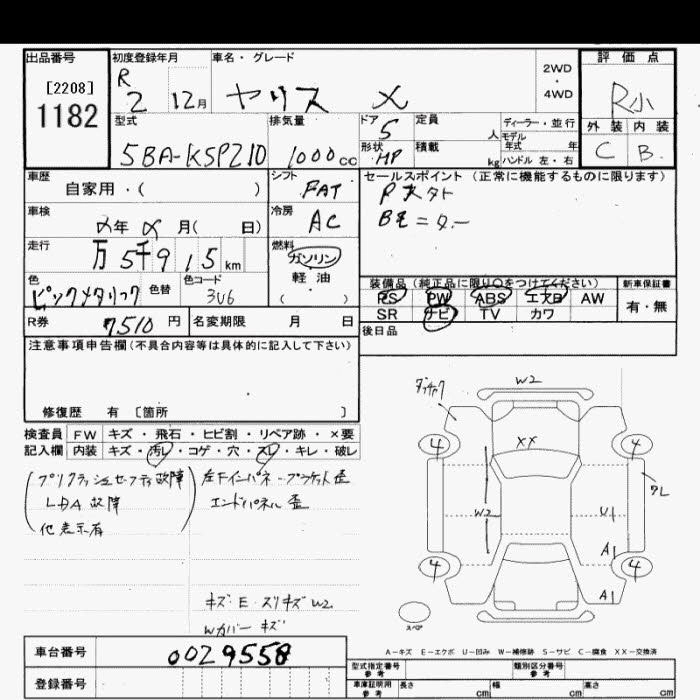 出品番号
[2208]
1182
初度登録年月
R
2 12月
車名・グレード
ヤリス X
2WD
・
4WD
評価点
R小
外装 内装
C B
型式
5BA-KSP210
排気量
1000cc
ドア 5
形状 HP
定員 人
積載 kg
ディーラー・並行
モデル
年式 年
ハンドル 左・右
車歴
自家用・( )
シフト FAT
セールスポイント (正常に機能するものに限ります)
車検
メ年 メ月( 日)
冷房 AC
走行
万 5千9 1 5 km
燃料
ガソリン
軽油
( )
色
ピンクメタリック
色替
色コード
3U6
装備品 (純正品に限り○をつけてください)
PS PW ABS エアB AW
SR ナビ TV カワ
新車保証書
有・無
R券 7510 円
名変期限 月 日
後日品
注意事項申告欄(不具合内容等は具体的に記入して下さい)
修復歴 有 〔箇所 〕
検査員 FW キズ・飛石・ヒビ割・リペア跡・×要
記入欄 内装 キズ・汚レ・コゲ・穴・スレ・キレ・破レ
プリクラッシュセーフティ故障
LDA 故障
他表示有
左下インパネ ブラケット歪
エンドパネル 歪
キズ・E・スリキズ W2
Wカバー キズ
W2
XX
4 4
W2
U1
A1
4 4
A1
スペア
A-キズ E-エクボ U-凹み W-補修跡 S-サビ C-腐食 XX-交換済
車台番号 0029558
登録番号
型式指定番号
参考
類別区分番号
参考
車庫証明用
参考
長さ cm
幅 cm
高さ cm